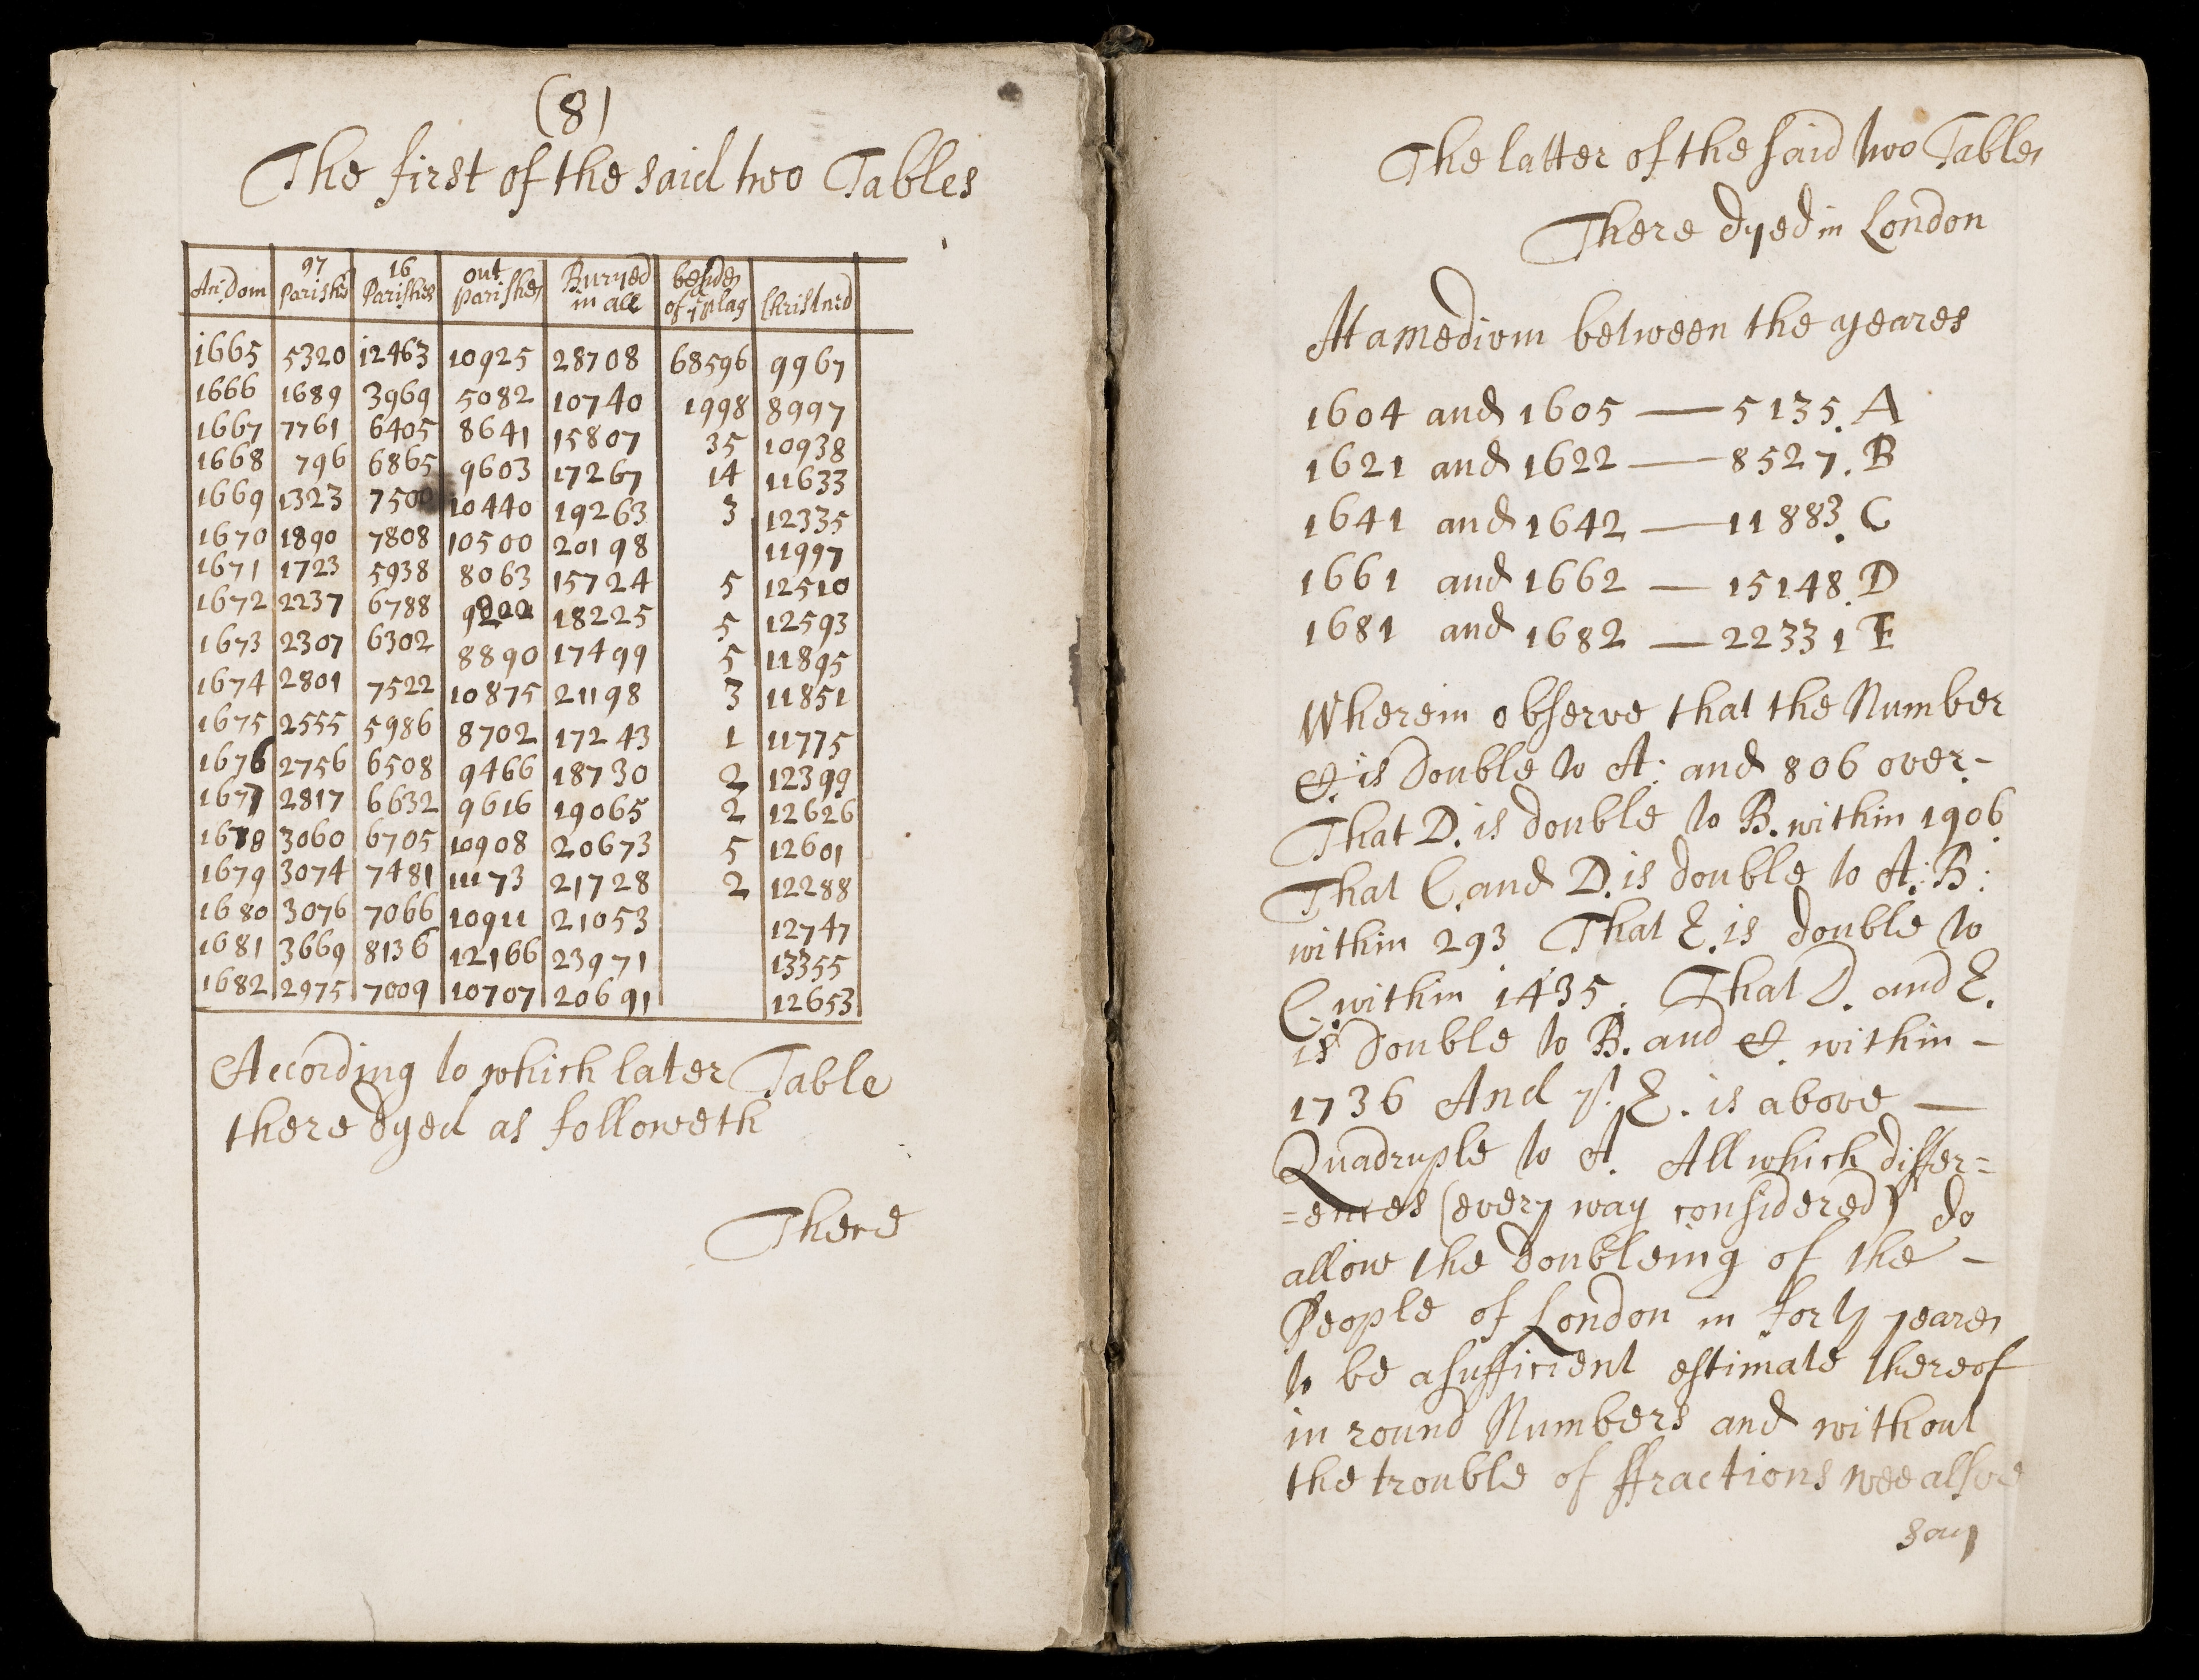 (8)
The first of the said two Tables
An: Dom 97 Parishes 16 Parishes out parishes Buryed in all besides of ye plag Christned
1665 5320 12463 10925 28708 68596 9967
1666 1689 3969 5082 10740 1998 8997
1667 7761 6405 8641 15807 35 10938
1668 796 6865 9603 17267 14 11633
1669 1323 7500 10440 19263 3 12335
1670 1890 7808 10500 20198 11997
1671 1723 5938 8063 15724 5 12510
1672 2237 6788 9200 18225 5 12593
1673 2307 6302 8890 17499 5 11895
1674 2801 7522 10875 21198 3 11851
1675 2555 5986 8702 17243 1 11775
1676 2756 6508 9466 18730 2 12399
1677 2817 6632 9616 19065 2 12626
1678 3060 6705 10908 20673 5 12601
1679 3074 7481 11173 21728 2 12288
1680 3076 7066 10911 21053 12747
1681 3669 8136 12166 23971 13355
1682 2975 7009 10707 20691 12653
According to which later Table
there dyed as followeth
There
The latter of the said two Tables
There dyed in London
At a medium between the yeares
1604 and 1605 — 5135. A
1621 and 1622 — 8527. B
1641 and 1642 — 11883. C
1661 and 1662 — 15148. D
1681 and 1682 — 22331 E
Wherein observe that the Number
C. is Double to A: and 806 over -
That D. is double to B. within 1906
That C. and D. is double to A: B:
within 293 That E. is double to
C. within 1435. That D. and E.
is Double to B. and C. within -
1736 And yt E. is above —
Quadruple to A. All which differ=
=ences (every way considered) do
allow the doubleing of the -
People of London in forty yeares
to be a sufficient estimate thereof
in round Numbers and without
the trouble of ffractions wee alsoe
say